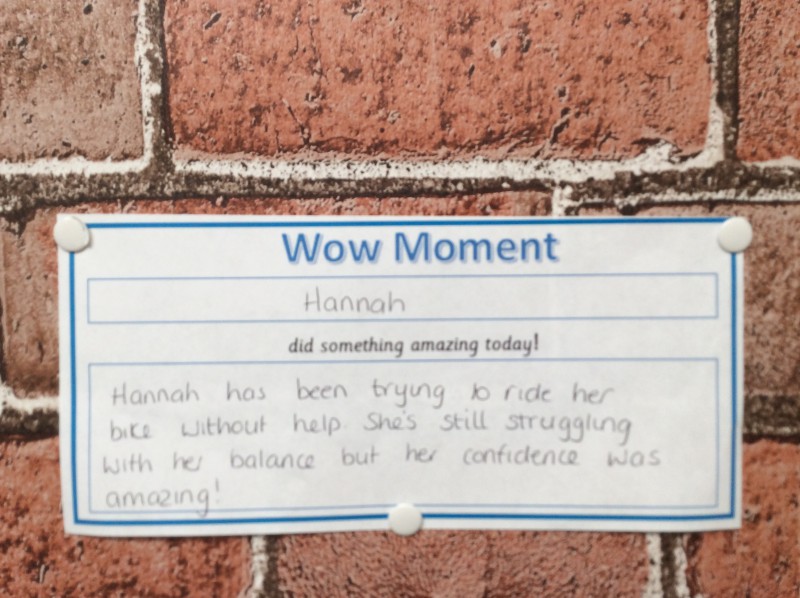 Wow Moment
Hannah
did something amazing today!
Hannah has been trying to ride her
bike without help. She's still struggling
with her balance but her confidence was
amazing!